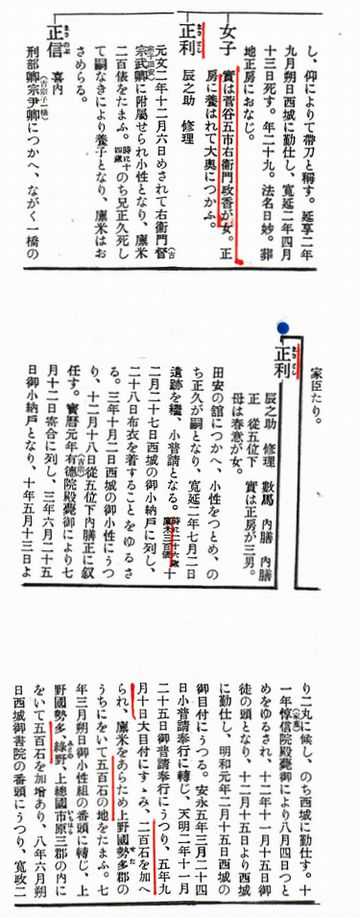 し、仰によりて帯刀と稱す。延享二年
九月朔日西城に勤仕し、寛延二年四月
十三日死す。年二十九。法名日妙。葬
地正房におなじ。
女子
實は菅谷五市右衛門政香が女。正
房に養はれて大奥につかふ。
正利
まさとし
辰之助 修理
元文二年十二月六日めされて右衛門督(吉宗二男)
宗武卿に附屬せられ小性となり、廩米
二百俵をたまふ。時に十四歳のち兄正久死し
て嗣なきにより養子となり、廩米はお
さめらる。
正信
まさのぶ
喜内
刑部卿宗尹卿(吉宗子一橋)につかへ、ながく一橋の
家臣たり。
正利
まさとし
辰之助 修理 數馬 内膳 内膳
正 從五位下 實は正房が三男。
母は春意が女。
田安の舘につかへ、小性をつとめ、の
ち正久が嗣となり、寛延二年七月二日
遺跡を繼、小普請となる。時に二十六歳廩米三百俵十
二月二十七日西城の御小納戸に列し、
二十八日布衣を着することをゆるさ
る。三年十月二日西城の御小性にうつ
り、十二月十八日從五位下内膳正に叙
任す。寶暦元年有德院殿(吉宗)薨御により七
月十二日寄合に列し、三年六月二十五
日御小納戸となり、十年五月十三日よ
り二丸に候し、のち西城に勤仕す。十
一年惇信院殿(家重)薨御により八月四日つと
めをゆるされ、十二年十一月十五日御
徒の頭となり、十二月十五日より西城
に勤仕し、明和元年二月十五日西城の
御目付にうつる。安永五年三月二十四
日小普請奉行に轉じ、天明二年十一月
二十五日御普請奉行にうつり、五年九
月十日大目付にすゝみ、二百石を加へ
られ、廩米をあらため上野國勢多郡の
うちにをいて五百石の地をたまふ。七
年三月朔日御小性組の番頭に轉じ、上
野國勢多、綠野、上總國市原三郡の内に
をいて五百石を加增あり、八年六月朔
日西城御書院の番頭にうつり、寛政二